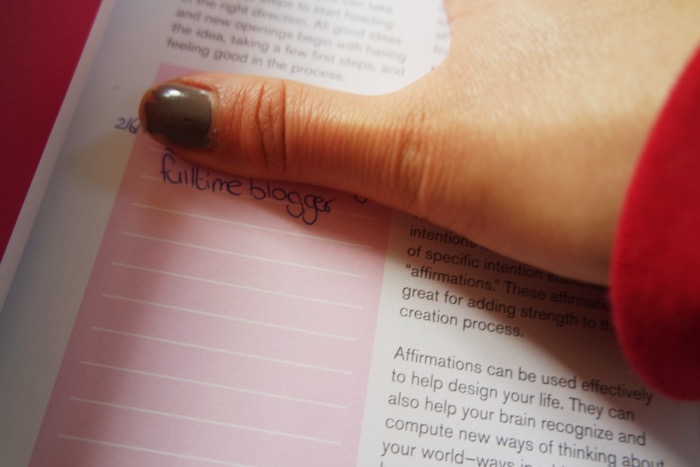 steps to start heading
the right direction. All good ideas
and new openings begin with having
the idea, taking a few first steps, and
feeling good in the process.
2/6/
fulltime blogger
intentions
of specific intention
"affirmations." These
great for adding strength to
creation process.
Affirmations can be used effectively
to help design your life. They can
also help your brain recognize and
compute new ways of thinking about
your world—ways